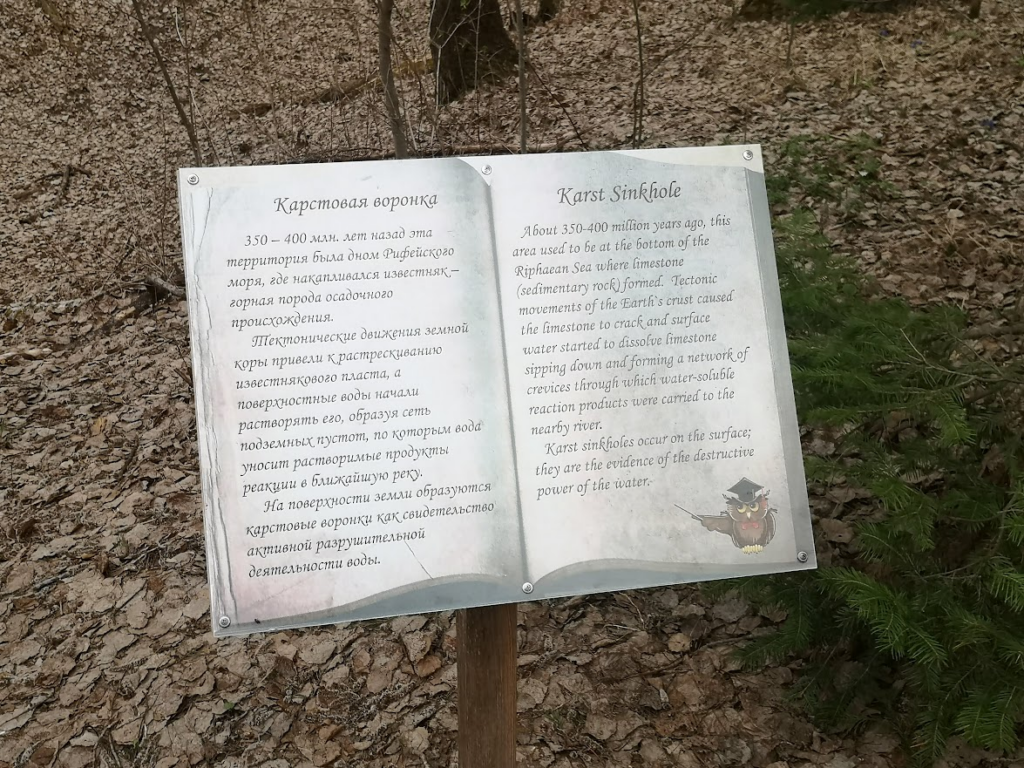 Карстовая воронка
350 – 400 млн. лет назад эта
территория была дном Рифейского
моря, где накапливался известняк –
горная порода осадочного
происхождения.
Тектонические движения земной
коры привели к растрескиванию
известнякового пласта, а
поверхностные воды начали
растворять его, образуя сеть
подземных пустот, по которым вода
уносит растворимые продукты
реакции в ближайшую реку.
На поверхности земли образуются
карстовые воронки как свидетельство
активной разрушительной
деятельности воды.
Karst Sinkhole
About 350-400 million years ago, this
area used to be at the bottom of the
Riphaean Sea where limestone
(sedimentary rock) formed. Tectonic
movements of the Earth's crust caused
the limestone to crack and surface
water started to dissolve limestone
sipping down and forming a network of
crevices through which water-soluble
reaction products were carried to the
nearby river.
Karst sinkholes occur on the surface;
they are the evidence of the destructive
power of the water.